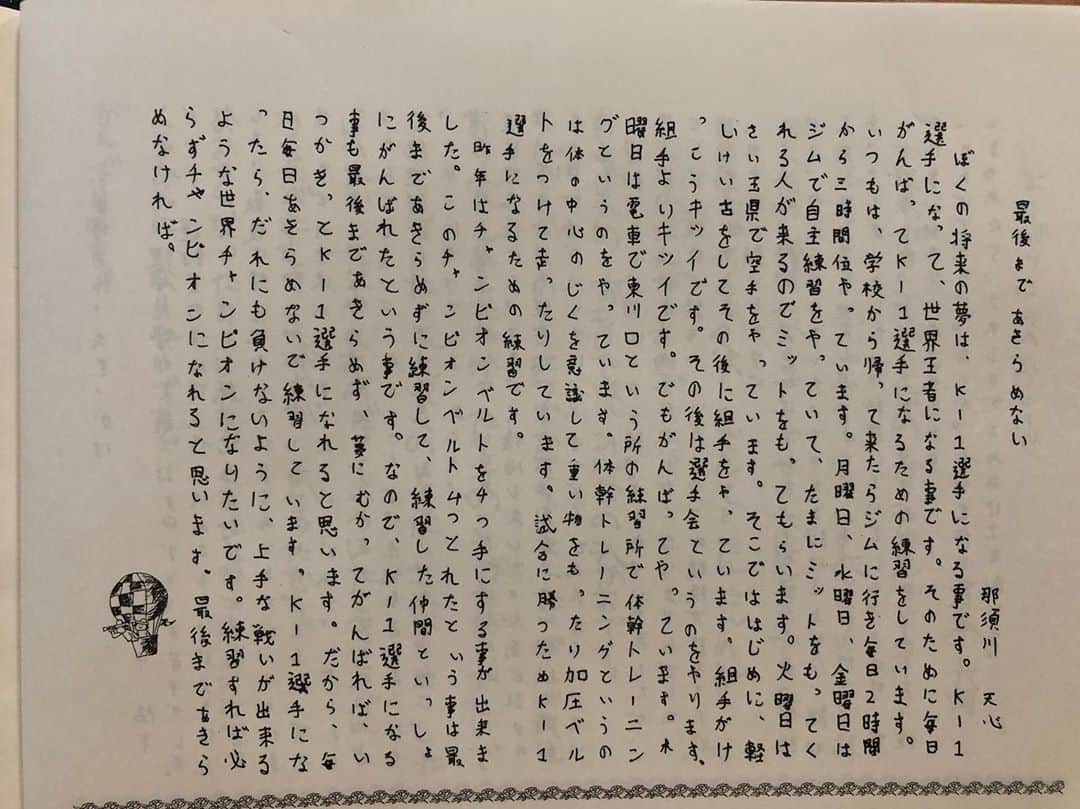 最後まであきらめない
那須川　天心
ぼくの将来の夢は、K-1選手になる事です。K-1
選手になって、世界王者になる事です。そのために毎日
がんばってK-1選手になるための練習をしています。
いつもは、学校から帰って来たらジムに行き毎日2時間
から三時間位やっています。月曜日、水曜日、金曜日は
ジムで自主練習をやっていて、たまにミットをもってく
れる人が来るのでミットをもってもらいます。火曜日は
さい玉県で空手をやっています。そこではじめに、軽
いけい古をしてその後に組手をやっています。組手がけ
っこうキツイです。その後は選手会というのをやります。
組手よりキツイです。でもがんばってやっています。木
曜日は電車で東川口という所の練習所で体幹トレーニン
グというのをやっています。体幹トレーニングというの
は体の中心のじくを意識して重い物をもったり加圧ベル
トをつけて走ったりしています。試合に勝つためK-1
選手になるための練習です。
昨年はチャンピオンベルトを4つ手にする事が出来ま
した。このチャンピオンベルト4つとれたという事は最
後まであきらめずに練習して、練習した仲間といっしょ
にがんばれたという事です。なので、K-1選手になる
事も最後まであきらめず、夢にむかってがんばれば、い
つかきっとK-1選手になれると思います。だから、毎
日毎日あきらめないで練習しています。K-1選手にな
ったら、だれにも負けないように、上手な戦いが出来る
ような世界チャンピオンになりたいです。練習すれば必
らずチャンピオンになれると思います。最後まであきら
めなければ。